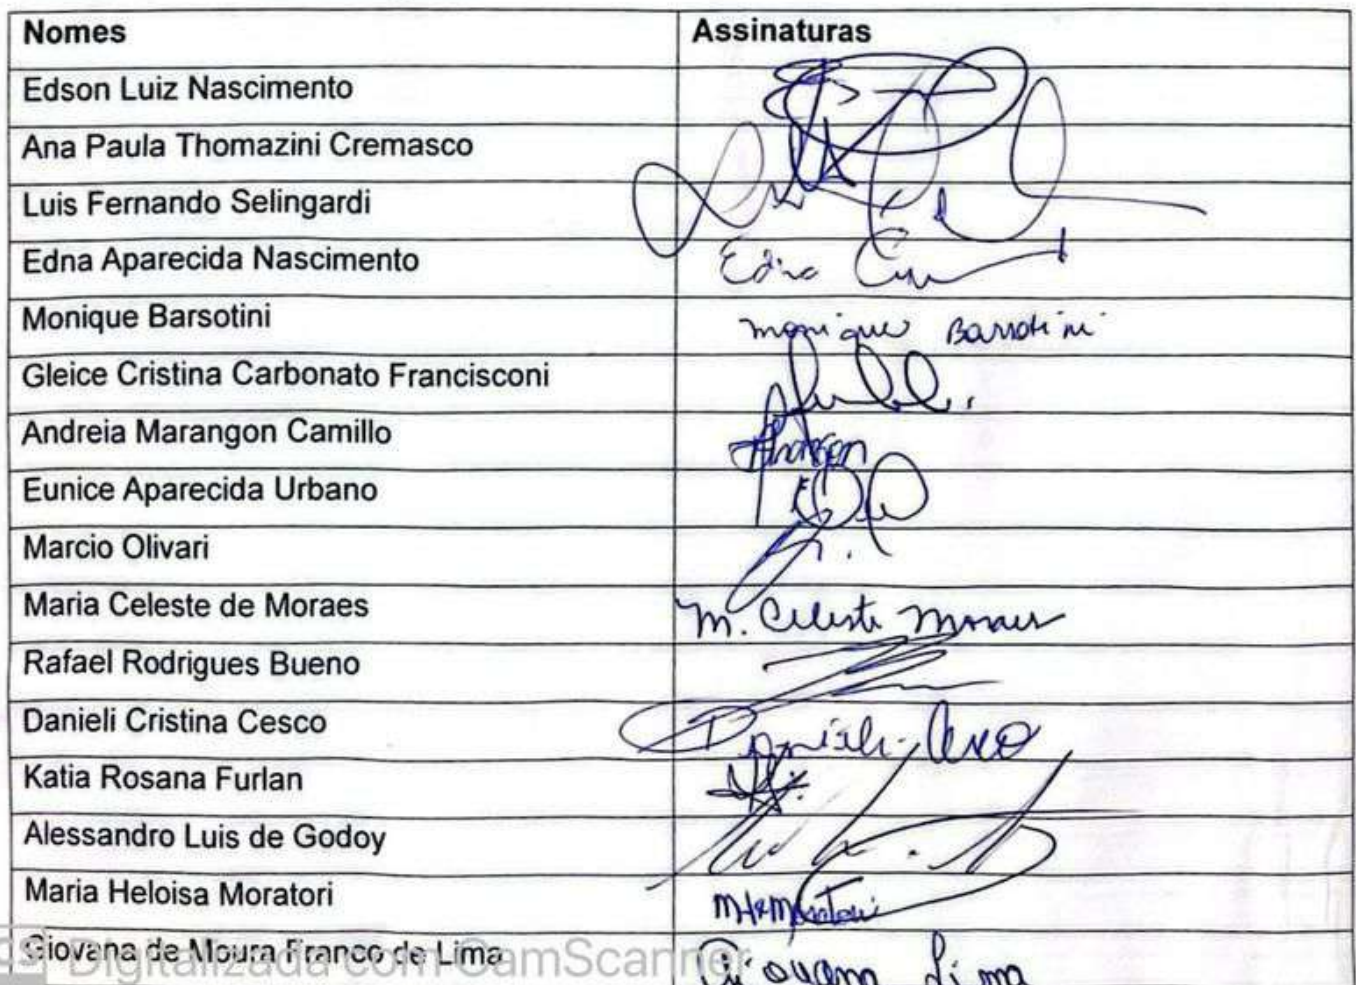 Nomes Assinaturas
Edson Luiz Nascimento
Ana Paula Thomazini Cremasco
Luis Fernando Selingardi
Edna Aparecida Nascimento Edna
Monique Barsotini Monique Barsotini
Gleice Cristina Carbonato Francisconi
Andreia Marangon Camillo
Eunice Aparecida Urbano
Marcio Olivari
Maria Celeste de Moraes M. Celeste Moraes
Rafael Rodrigues Bueno
Danieli Cristina Cesco Danieli Cesco
Katia Rosana Furlan
Alessandro Luis de Godoy
Maria Heloisa Moratori MHMoratori
Giovana de Moura Franco de Lima Giovana Lima
CS Digitalizada com CamScanner